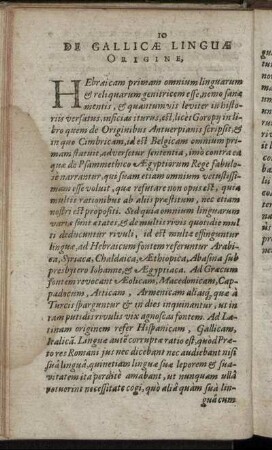 10
DE GALLICÆ LINGUÆ
ORIGINE,
HEbraicam primam omnium linguarum
& reliquarum genitricem esse, nemo sanæ
mentis, & quantumvis leviter in histo-
riis versatus, inficias iturus, est, licet Goropy in li-
bro quem de Originibus Antuerpianis scripsit, &
in quo Cimbricam, id est Belgicam omnium pri-
mam statuit, adversetur sententia, imò contra ea
quæ de Psammethico Ægyptiorum Rege fabulo-
sè narrantur, quæ suam etiam omnium vetustissi-
mam esse voluit, quæ refutare non opus est, quia
multis rationibus ab aliis præstitum, nec etiam
nostri est propositi. Sed quia omnium linguarum
variæ sunt ætates, & de multis rivis quondie mul-
ti deducuntur rivuli, id est multæ effinguntur
linguæ, ad Hebraicum fontem referuntur Arabi-
ca, Syriaca, Chaldaica, Æthiopica, Abasina sub
presbytero Iohanne, & Ægyptiaca. Ad Græcum
fontem revocant Æolicam, Macedonicam, Cap-
padocum, Atticam, Armenicam aliasq, quæ à
Turcis sparguntur & in dies inquinantur, ius in
tam putidis rivulis vix agnoscas fontem. Ad La-
tinam originem refer Hispanicam, Gallicam,
Italicã. Linguæ autẽ corruptæ ratio est, quod Præ-
tores Romani jus nec dicebant nec audiebant nisi
suâ linguâ, quinetiam linguæ suæ leporem & sua-
vitatem ita perditè amabant, ut nunquam ullâ
potuerint necessitate cogi, quò aliâ quàm suâ lin-
guâ cum